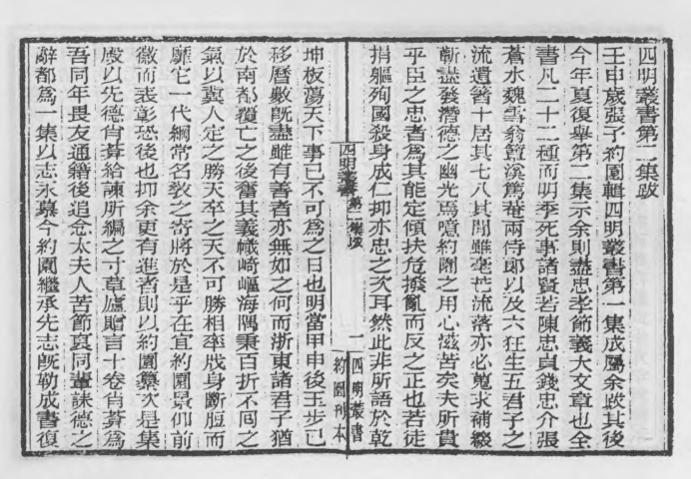 四明叢書第二集跋
壬申歲張子約園輯四明叢書第一集成屬余跋其後
今年夏復舉第二集示余則盡忠孝節義大文章也全
書凡二十二種而明季死事諸賢若陳忠貞錢忠介張
蒼水魏雪翁簟溪篤菴兩侍郎以及六狂生五君子之
流遺箸十居其七八其閒雖毫芒流落亦必蒐求補綴
蘄盡發潛德之幽光焉噫約園之用心滋苦矣夫所貴
乎臣之忠者為其能定傾扶危撥亂而反之正也若徒
捐軀殉國殺身成仁抑亦忠之次耳然此非所語於乾
四明叢書 第二集跋 一 四明叢書 約園刊本
坤板蕩天下事已不可為之日也明當甲申後王步已
移曆數旣盡雖有善者亦無如之何而浙東諸君子猶
於南都覆亡之後奮其義幟崎嶇海隅秉百折不回之
氣以冀人定之勝天卒之天不可勝相率戕身斷脰而
靡它一代綱常名敎之寄將於是乎在宜約園景仰前
徽而表彰恐後也抑余更有進者則以約園纂次是集
殿以先德肖葊給諫所編之寸草廬贈言十卷肖葊為
吾同年畏友通籍後追念太夫人苦節裒同輩誄德之
辭都為一集以志永慕今約園繼承先志旣勒成書復